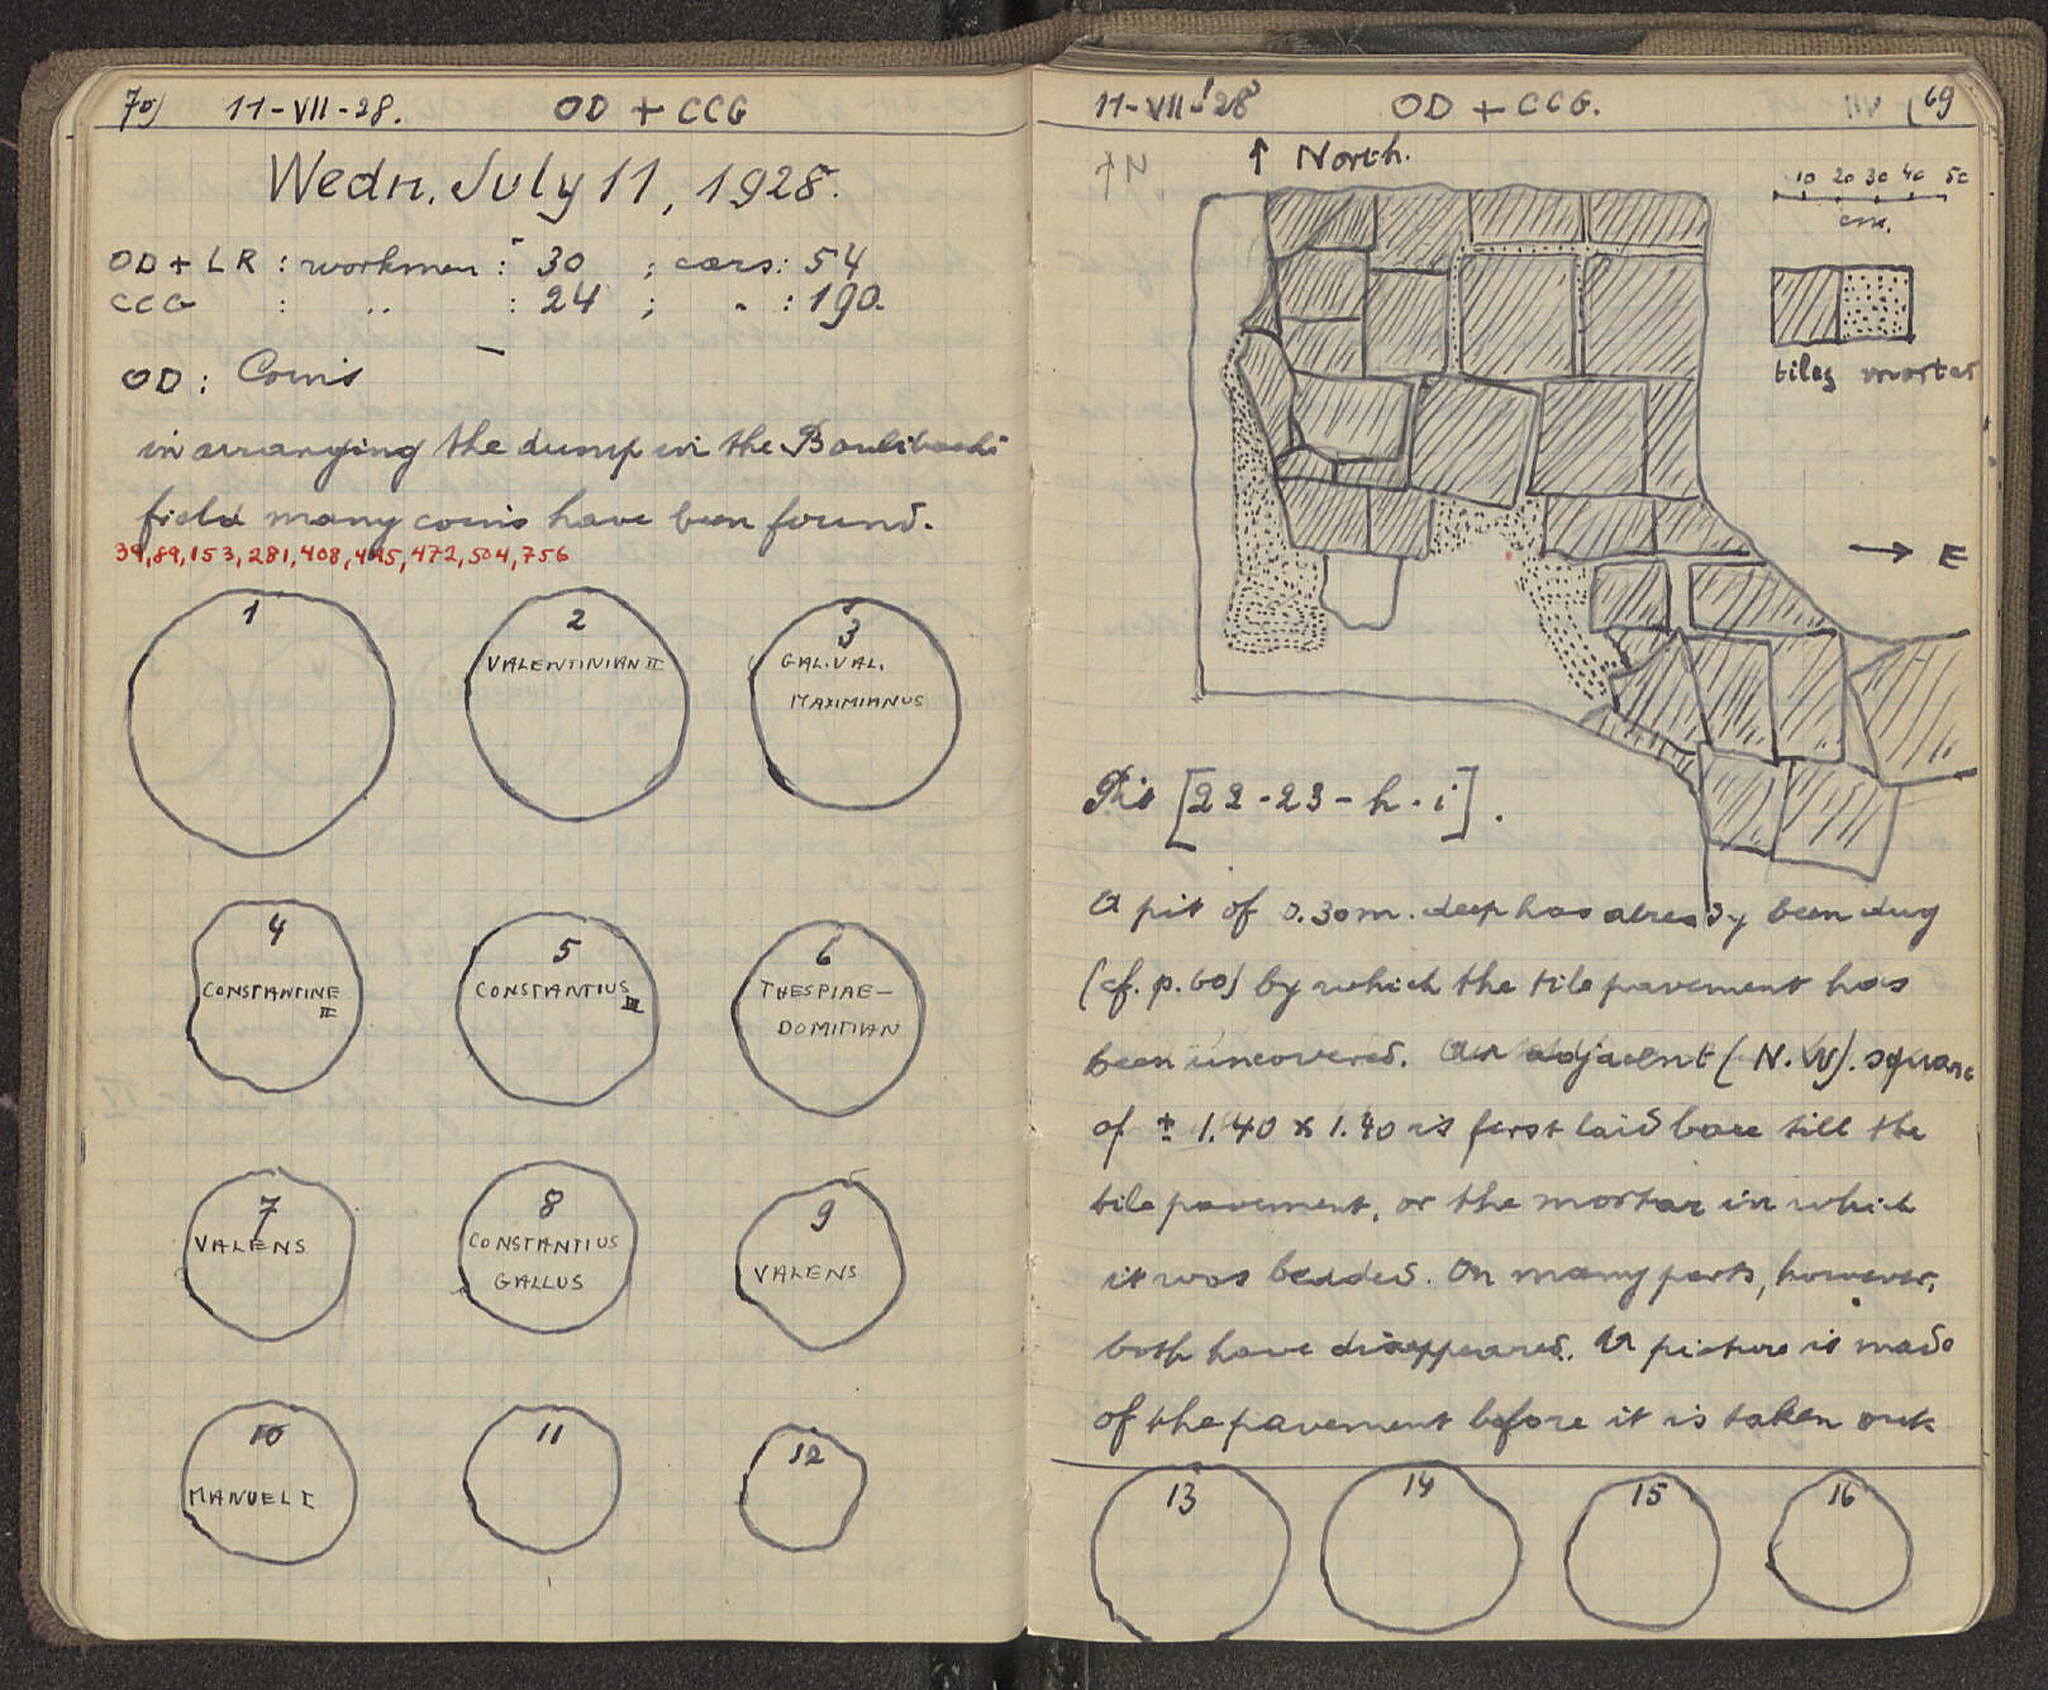 70) 11-VII-28. OD + CCG
Wedn. July 11, 1928.
OD + LR : workmen : 30 ; cars : 54
CCG : " : 24 ; " : 190.
OD : Coins
in arranging the dump in the
field many coins have been found.
39, 89, 153, 281, 408, 445, 472, 504, 756
1
2
VALENTINIAN II
3
GAL. VAL.
MAXIMIANUS
4
CONSTANTINE
II
5
CONSTANTIUS
III
6
THESPIAE-
DOMITIAN
7
VALENS
8
CONSTANTIUS
GALLUS
9
VALENS
10
MANUEL I
11
12
11-VII-28 OD + CCG. (69
↑ North.
10 20 30 40 50
cm.
tiles mortar
→ E
Pit [22-23-h-i].
A pit of 0.30m. deep has already been dug
(cf. p. 60) by which the tile pavement has
been uncovered. An adjacent (N.W). square
of ± 1.40 x 1.40 is first laid bare till the
tile pavement, or the mortar in which
it was bedded. On many parts, however,
both have disappeared. A picture is made
of the pavement before it is taken out.
13
14
15
16